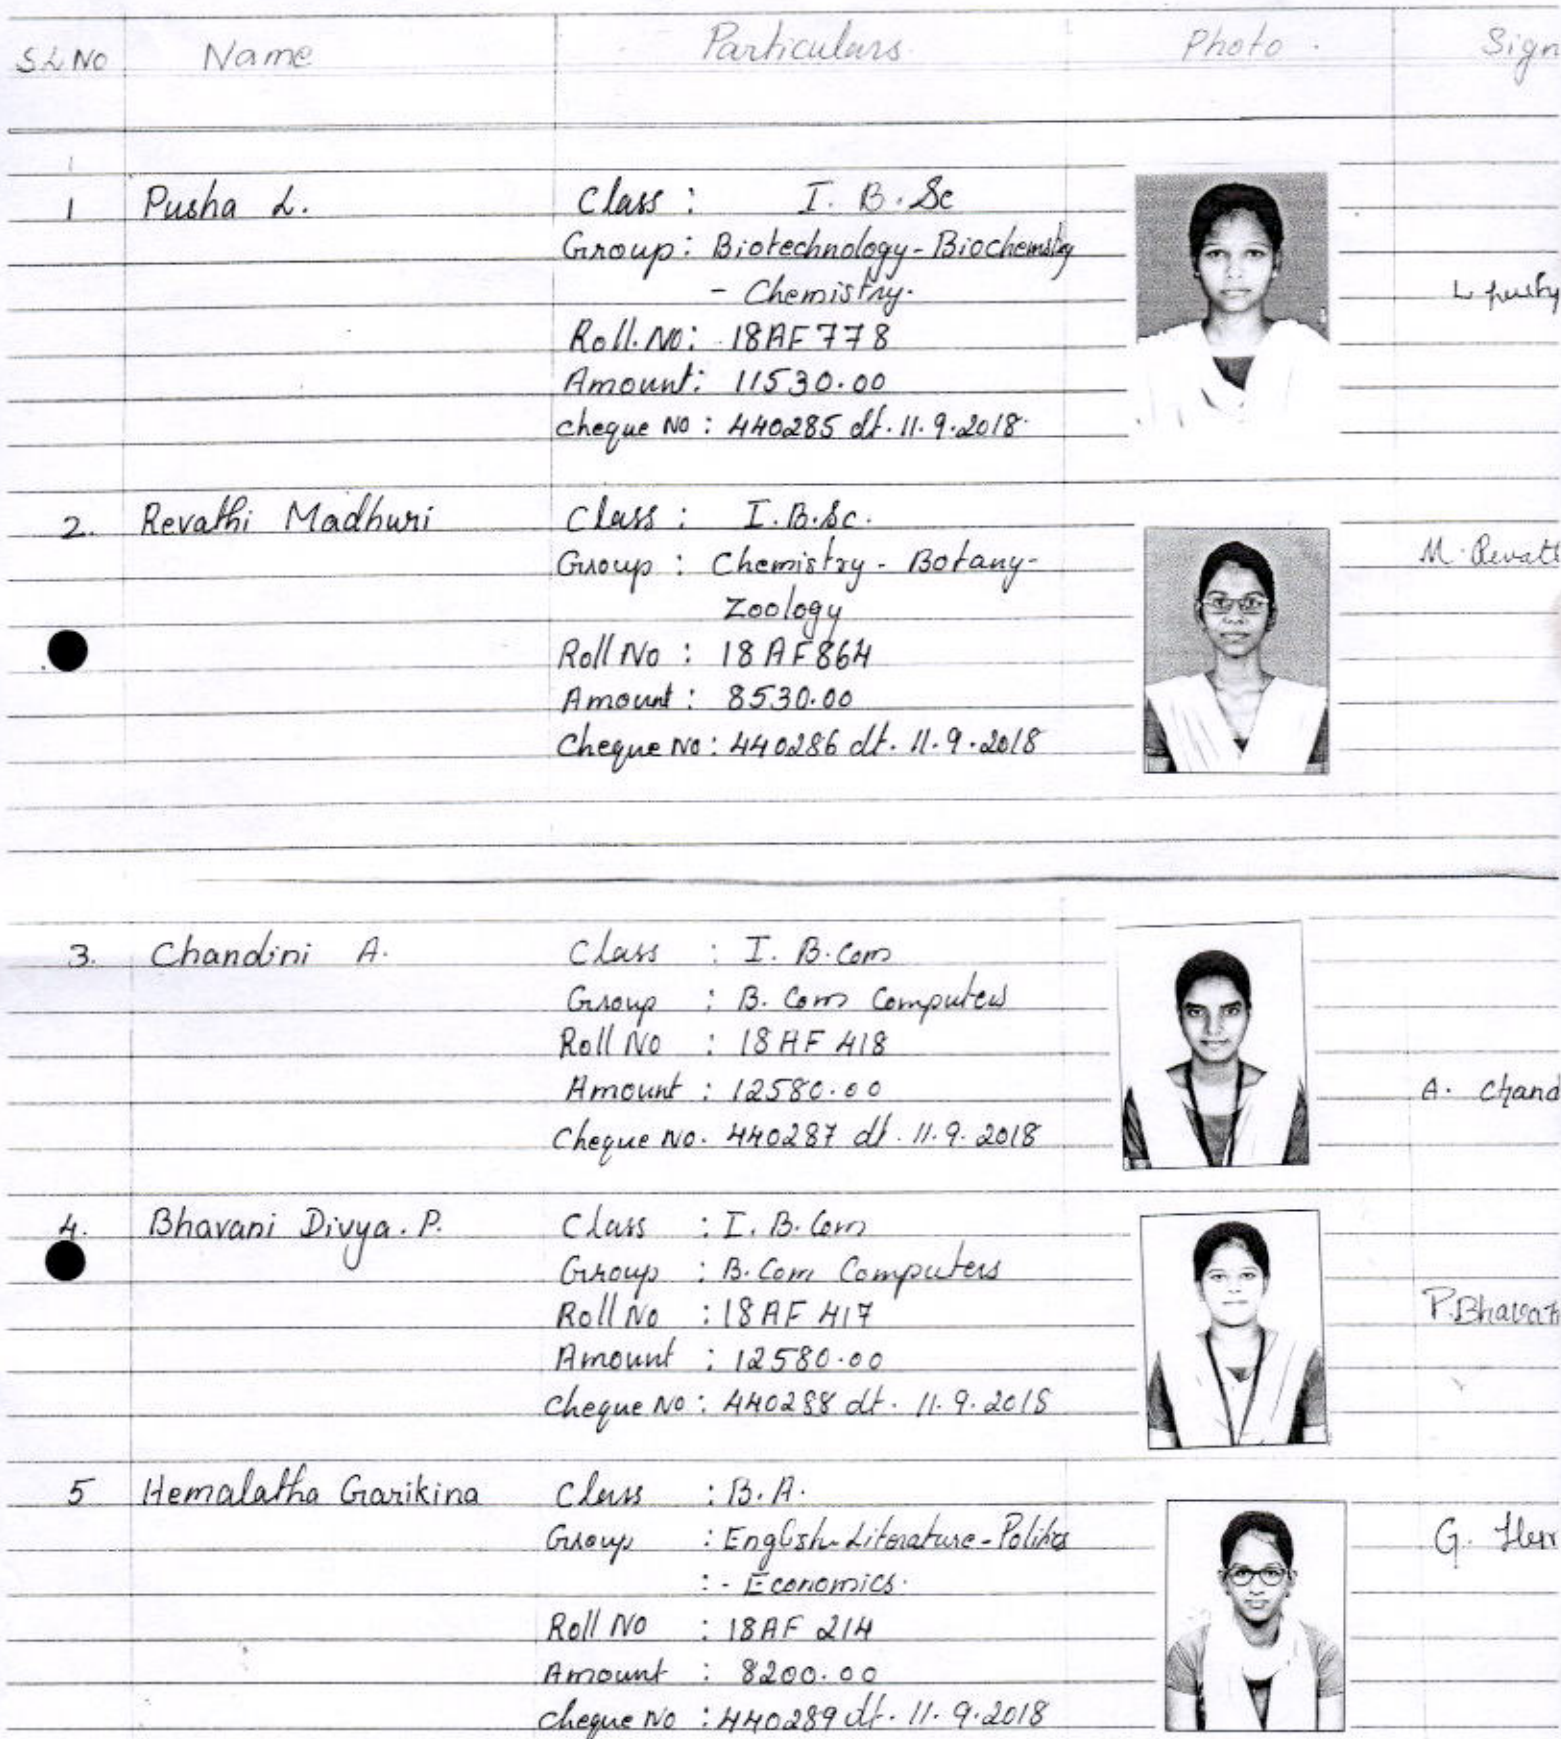 SL NO Name Particulars Photo. Sign
1 Pusha L. Class : I. B. Sc
Group : Biotechnology - Biochemistry
- Chemistry.
L
Roll. No : 18AF778
Amount : 11530.00
cheque No : 440285 dt. 11.9.2018.
2. Revathi Madhuri Class : I. B. Sc.
M. Revath
Group : Chemistry - Botany -
Zoology
Roll No : 18 AF864
Amount : 8530.00
Cheque No : 440286 dt. 11.9.2018
3. Chandini A. Class : I. B. Com
Group : B. Com Computers
Roll No : 18AF 418
Amount : 12580.00 A. Chand
Cheque No. 440287 dt. 11.9.2018
4. Bhavani Divya. P. Class : I. B. Com
Group : B. Com Computers
Roll No : 18AF 417 P. Bhavan
Amount : 12580.00
Cheque No : 440288 dt. 11.9.2018
5 Hemalatha Garikina Class : B.A.
Group : English Literature - Politics G. Hem
: - Economics.
Roll No : 18AF 214
Amount : 8200.00
cheque No : 440289 dt. 11.9.2018